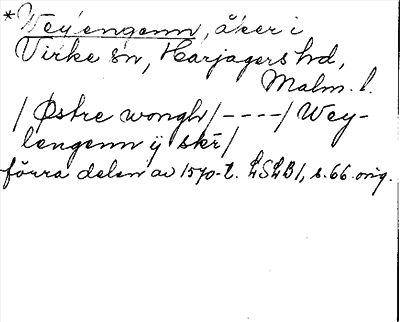 *Weylengenn, åker i
Virke sn, Harjagers hd,
Malm. l.
/Østre wongh/----/Wey-
lengenn ÿ skr/
förra delen av 1570-t. LSLB1, s. 66 orig.